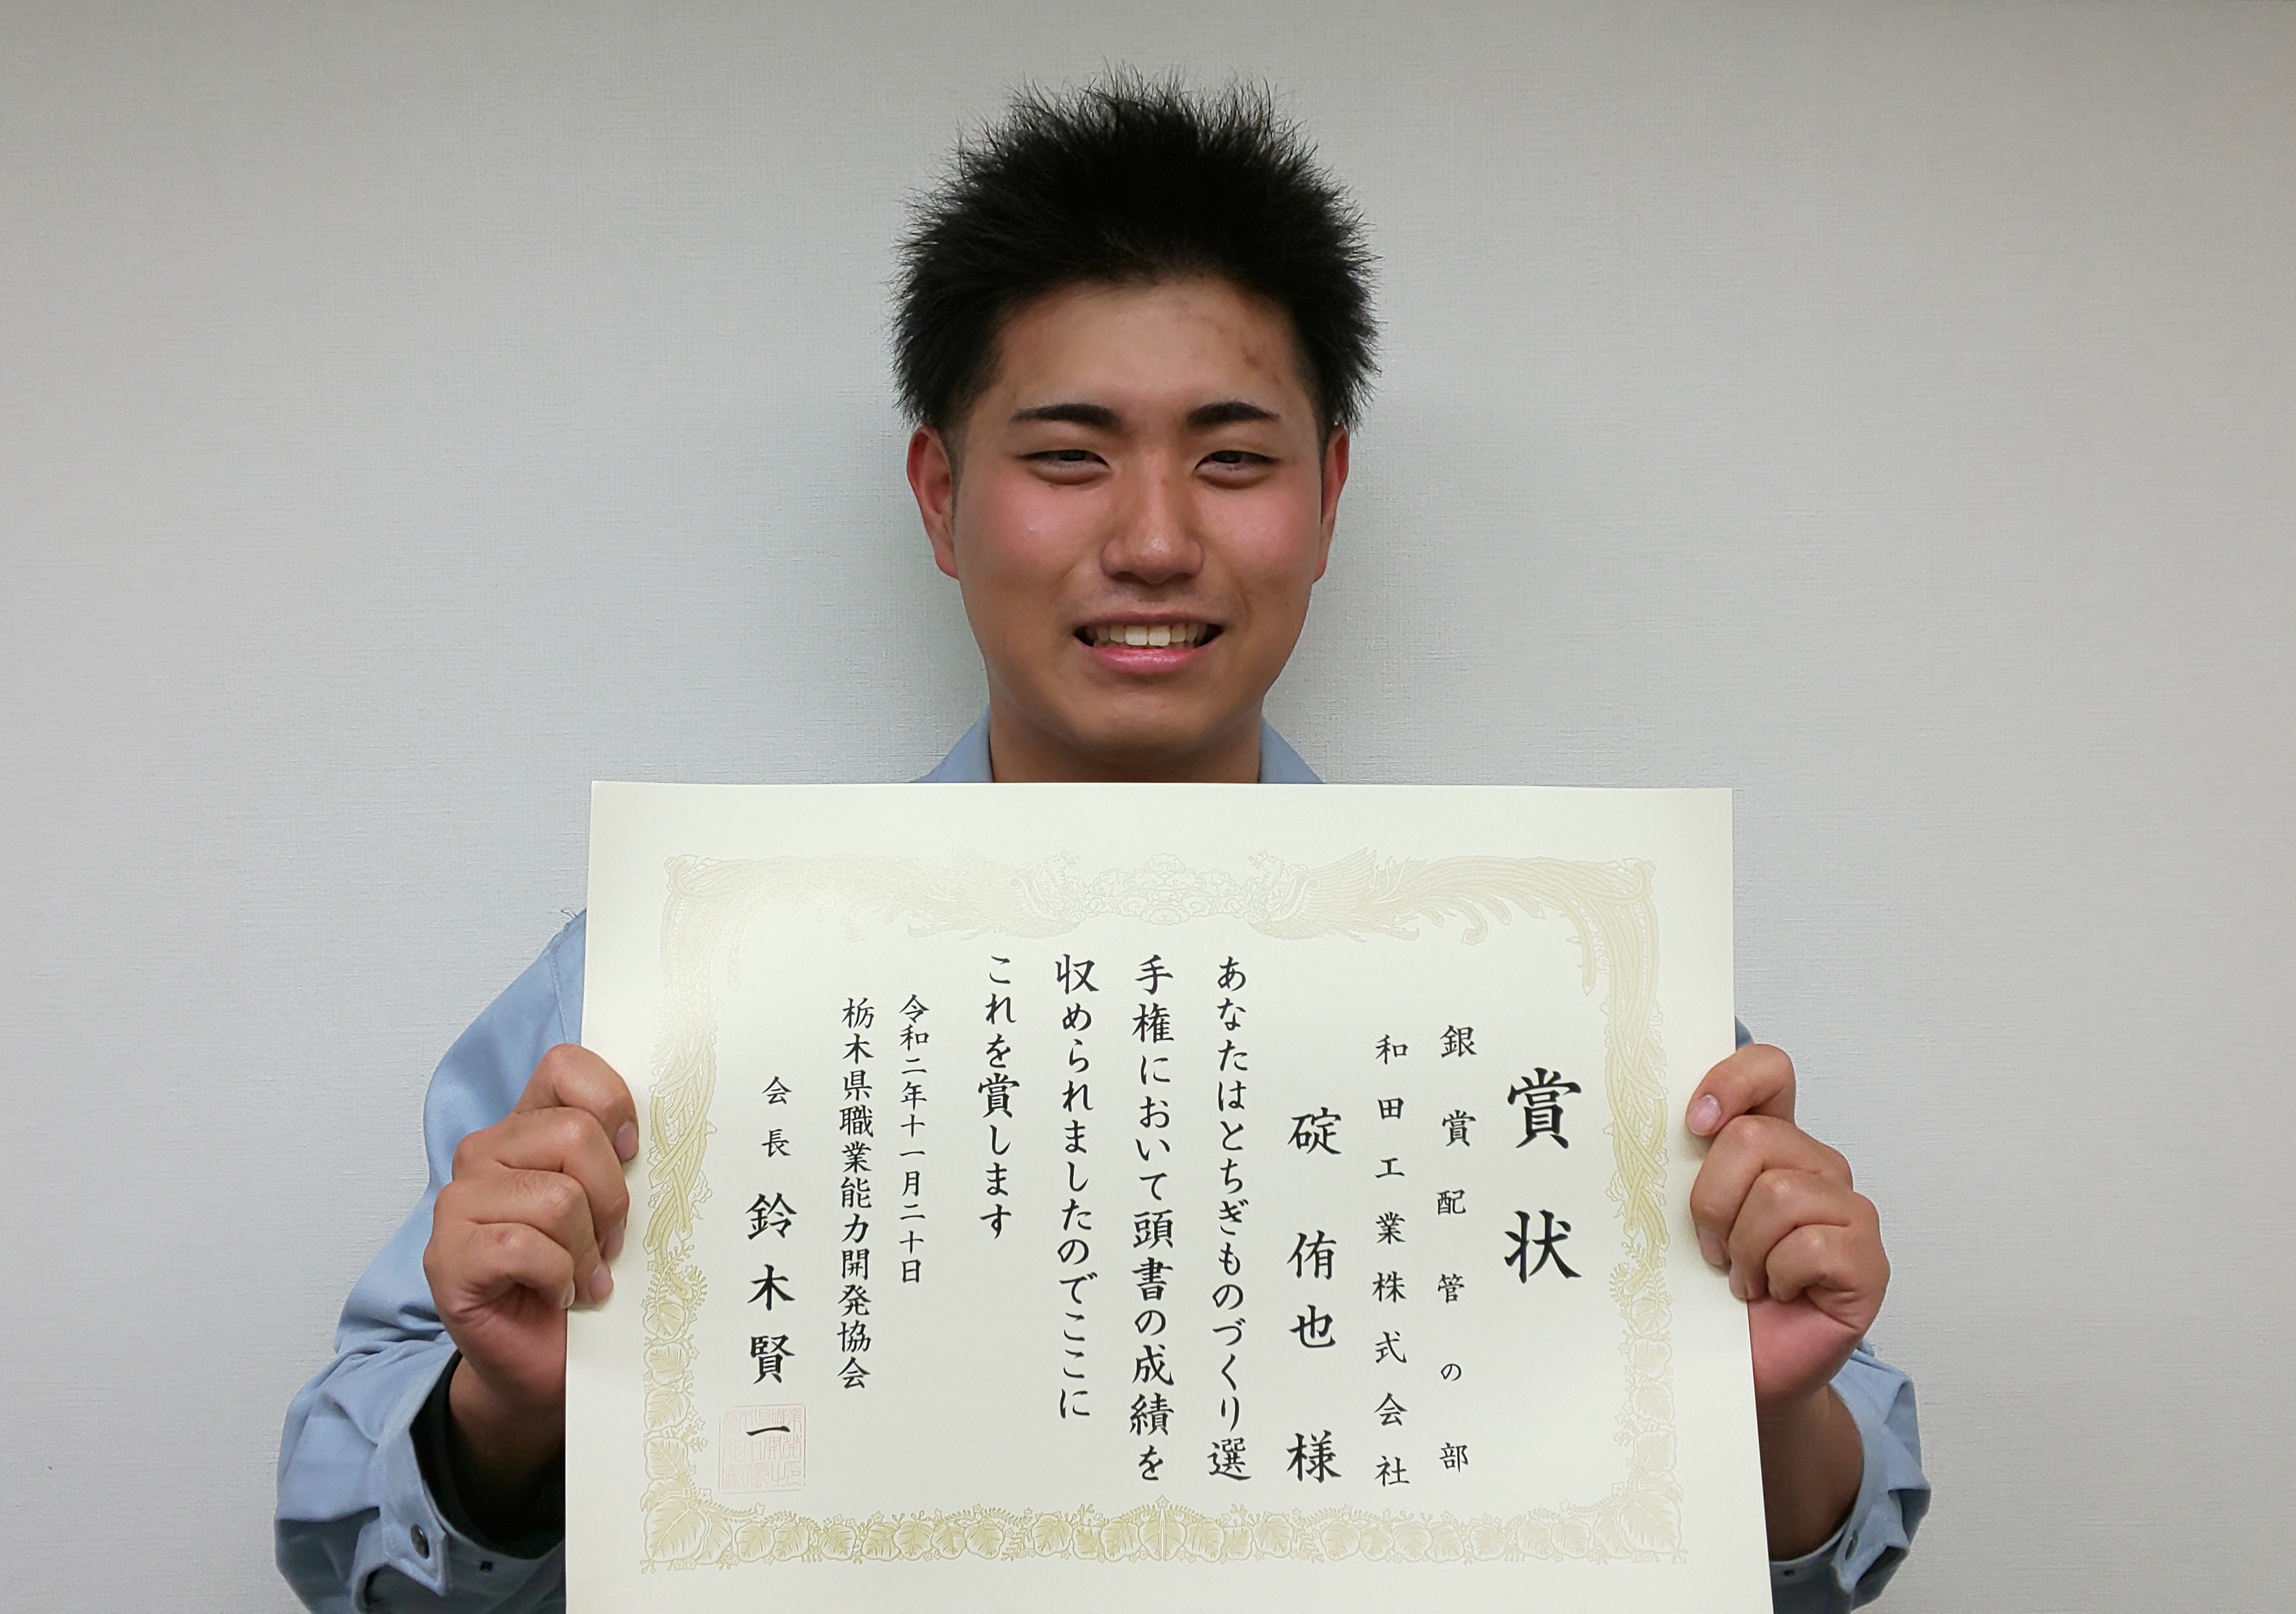 賞状
銀賞配管の部
和田工業株式会社
碇侑也様
あなたはとちぎものづくり選
手権において頭書の成績を
収められましたのでここに
これを賞します
令和二年十一月二十日
栃木県職業能力開発協会
会長鈴木賢一